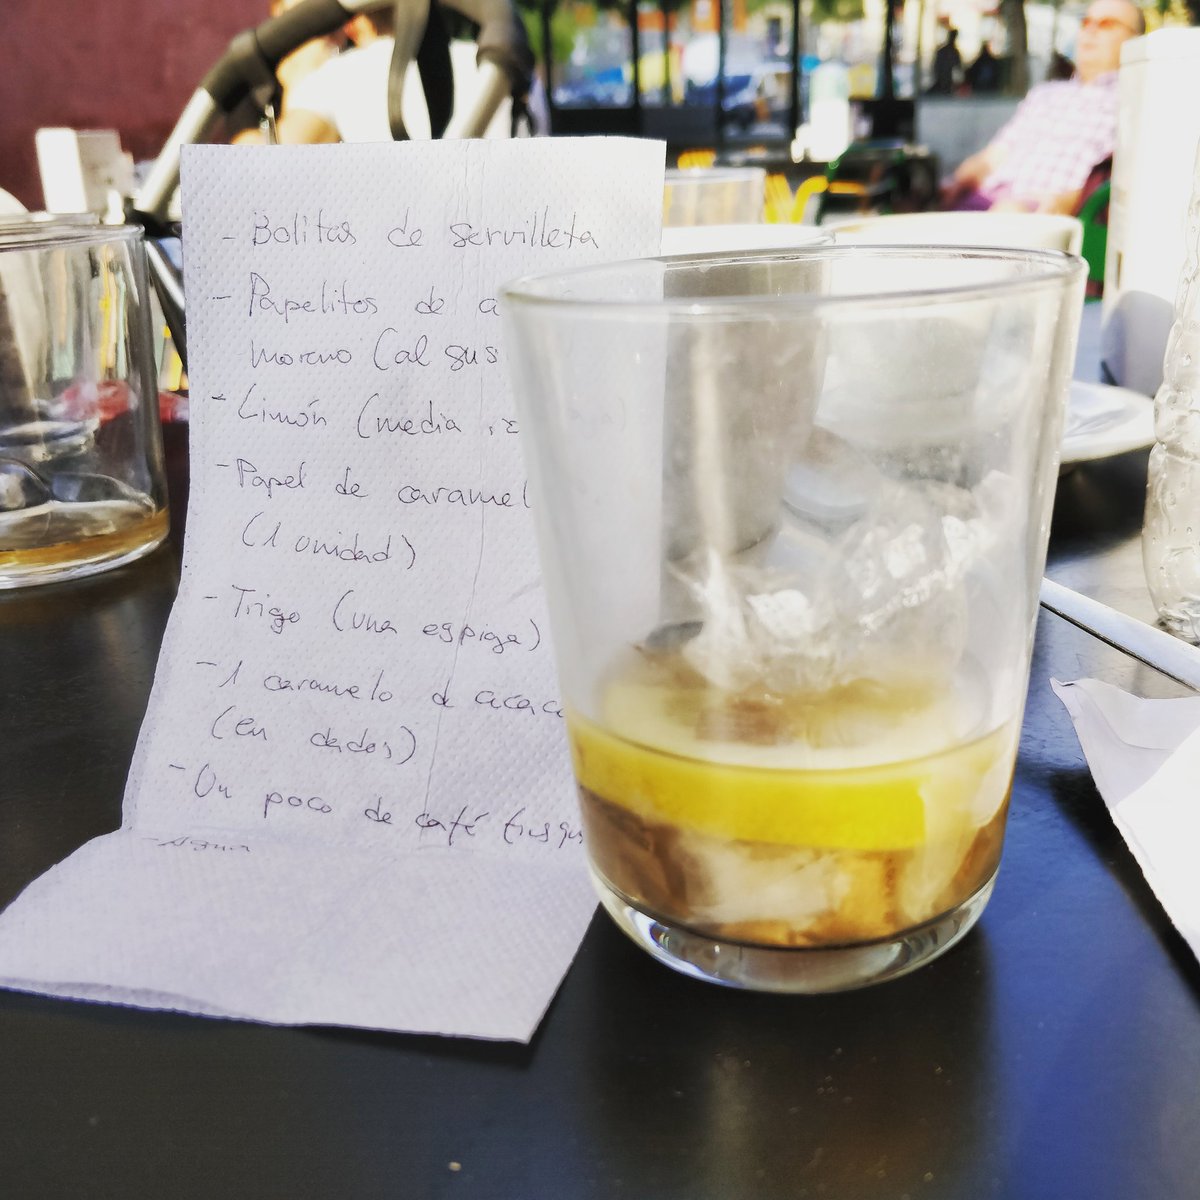 - Bolitas de servilleta
- Papelitos de a
moreno (al gus
- Limón (media
- Papel de caramel
(1 unidad)
- Trigo (una espiga)
- 1 caramelo de
(en dados)
- Un poco de café
- Agua